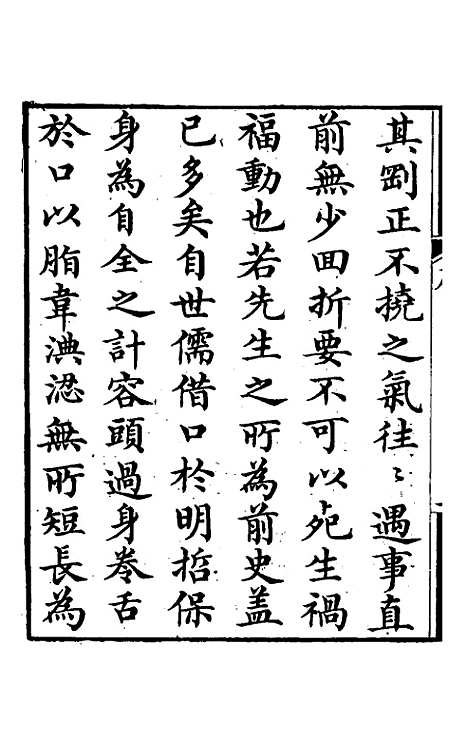 其剛正不撓之氣徃〻遇事直
前無少回折要不可以死生禍
福動也若先生之所為前史蓋
已多矣自世儒借口於明哲保
身為自全之計容頭過身卷舌
於口以脂韋淟涊無所短長為